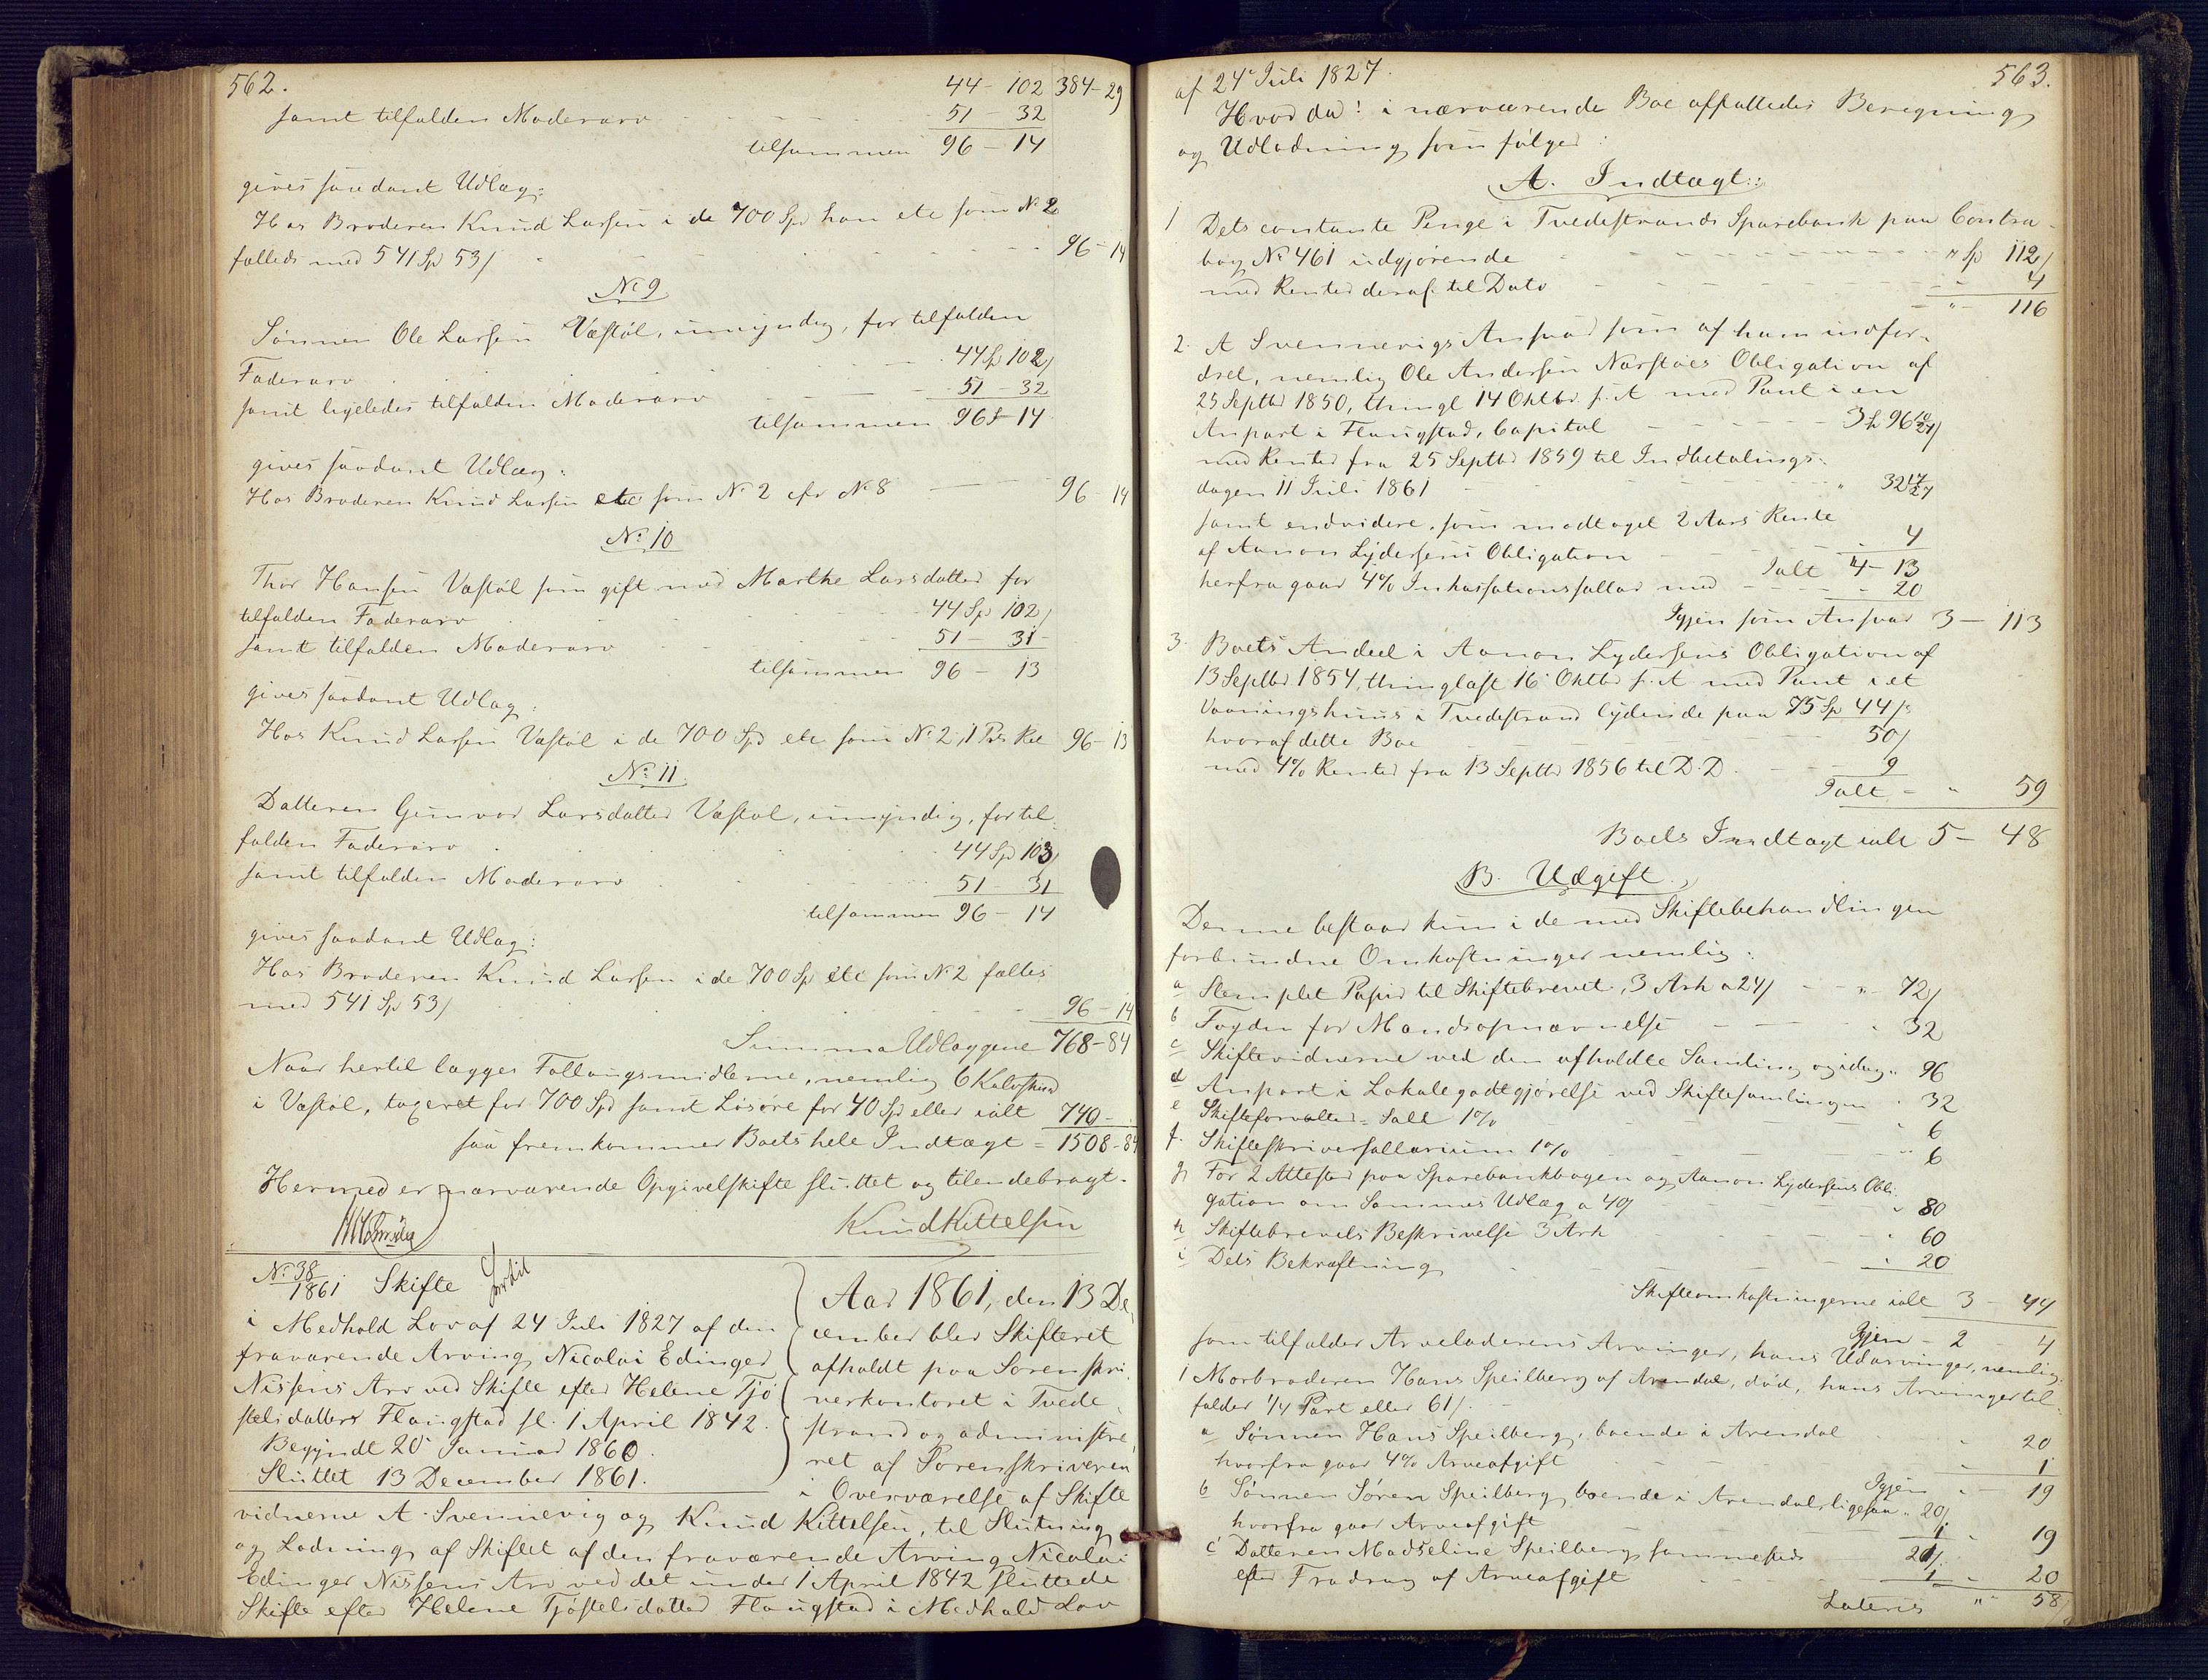 562.
44 - 102 384 - 29
samt tilfalden Moderarv 51 - 32
tilsammen 96 - 14
gives saadant Udlæg:
Hos Broderen Knud Larsen i de 700 Spd han etc som No 2
fælleds med 541 Sp 53 / 96 - 14
No 9
Sønnen Ole Larsen Væstøl, umyndig, for tilfalden
Faderarv 44 Sp 102 /
samt ligeledes tilfalden Moderarv 51 - 32
tilsammen 96 - 14
gives saadant Udlæg:
Hos Broderen Knud Larsen etc som No 2 cfr No 8 96 - 14
No 10
Thor Hansen Væstøl som gift med Marthe Larsdatter for
tilfalden Faderarv 44 Sp 102 /
samt tilfalden Moderarv 51 - 31
tilsammen 96 - 13
gives saadant Udlæg:
Hos Knud Larsen Væstøl i de 700 Spd etc som No 2, 1 Pr. 96 - 13
No 11
Datteren Gunvor Larsdatter Væstøl, umyndig, for til
falden Faderarv 44 Sp 103 /
samt tilfalden Moderarv 51 - 31
tilsammen 96 - 14
gives saadant Udlæg:
Hos Broderen Knud Larsen i de 700 Sp etc som No 2 fælles
med 541 Sp 53 / 96 - 14
Summa Udlæggene 768 - 84
Naar hertil lægges Follaugsmidlerne, nemlig 6 Kalvskind
i Væstøl, taxeret for 700 Spd samt Løsøre for 40 Sp eller ialt 740 -
saa fremkommer Boets hele Indtægt = 1508 - 84
Hermed er nærværende Opgivelskifte sluttet og tilendebragt.
Knud Kittelsen
No 38
1861 Skifte
i Medhold Lov af 24 Juli 1827 af den
fraværende Arving Nicolai Edinger
Nissens Arv ved Skifte efter Helene Tjø
stelsdatter Flaugstad sl. 1 April 1842.
Begyndt 20 Januar 1860.
Sluttet 13 December 1861.
Aar 1861, den 13 De-
cember blev Skifteret
afholdt paa Sorenskri-
verkontoret i Tvede-
strand og administre-
ret af Sorenskriveren
i Overværelse af Skifte
vidnerne A. Svennevig og Knud Kittelsen, til Slutning
og Lodning af Skiftet af den fraværende Arving Nicolai
Edinger Nissens Arv ved det under 1 April 1842 sluttede
Skifte efter Helene Tjøstelsdatter Flaugstad i Medhold Lov
563.
af 24 Juli 1827.
Hvorda! i nærværende Boe affattedes Beregning
og Udlodning som følger:
A. Indtægt:
1 Dets contante Penge i Tvedestrands Sparebank paa Contra-
bog No 461 udgjørende " Sp 112 /
med Renter deraf til Dato 4
" 116
2. A Svennevigs Ansvar som af ham indfor-
dret, nemlig Ole Andersen Narstøes Obligation af
25 Septbr 1850, thingl 14 Oktbr s. A. med Pant i en
Anpart i Flaugstad, Capital 3 Sp 96 10/24 /
med Renter fra 25 Septbr 1859 til Indbetalings-
dagen 11 Juli 1861 " 32 17/24
samt endvidere, som modtaget 2 Aars Rente
af Aanon Lydersens Obligation 4
Ialt 4 - 13
herfra gaar 4% Inkassationssallar med 20
Igjen som Ansvar 3 - 113
3. Boets Andeel i Aanon Lydersens Obligation af
13 Septbr 1854, thinglæst 16 Oktbr s. A. med Pant i et
Vaaningshuus i Tvedestrand lydende paa 75 Sp 44 /s
hvoraf dette Boe 50 /
med 4% Renter fra 13 Septbr 1856 til D. D. 9
Ialt - " 59
Boets Indtægt ialt 5 - 48
B. Udgift.
Denne bestaar kun i de med Skiftebehandlingen
forbundne Omkostninger nemlig:
a Stemplet Papir til Skiftebrevet, 3 Ark a 24 / " 72 /
b Fogden for Mandsopnævnelse " 32
c Skiftevidnerne ved den afholdte Samling og idag " 96
d Anpart i Lokalegodtgjørelse ved Skiftesamlingen " 32
e Skifteforvalter-Sall 1% " 6
f. Skifteskriversallarium 1% " 6
g For 2 Attester paa Sparebankbogen og Aanon Lydersens Obli-
gation om Sammes Udlæg a 40 / " 80
h Skiftebrevets Beskrivelse 3 Ark " 60
i Dets Bekræftning " 20
Skifteomkostningerne ialt 3 - 44
Igjen - 2 4
som tilfalder Arveladerens Arvinger, hans Udarvinger, nemlig:
1 Morbroderen Hans Speilberg af Arendal, død, hans Arvinger til-
falder 1/4 Part eller 61 /.
a Sønnen Hans Speilberg, boende i Arendal " 20
hvorfra gaar 4% Arveafgift " 1
Igjen " 19
b Sønnen Søren Speilberg, boende i Arendal, ligesaa " 20 /
hvorfra gaar Arveafgift 1 " 19
c Datteren Madseline Speilberg sammesteds 21 /
efter Fradrag af Arveafgift 1 " 20
Lateris " 58 /